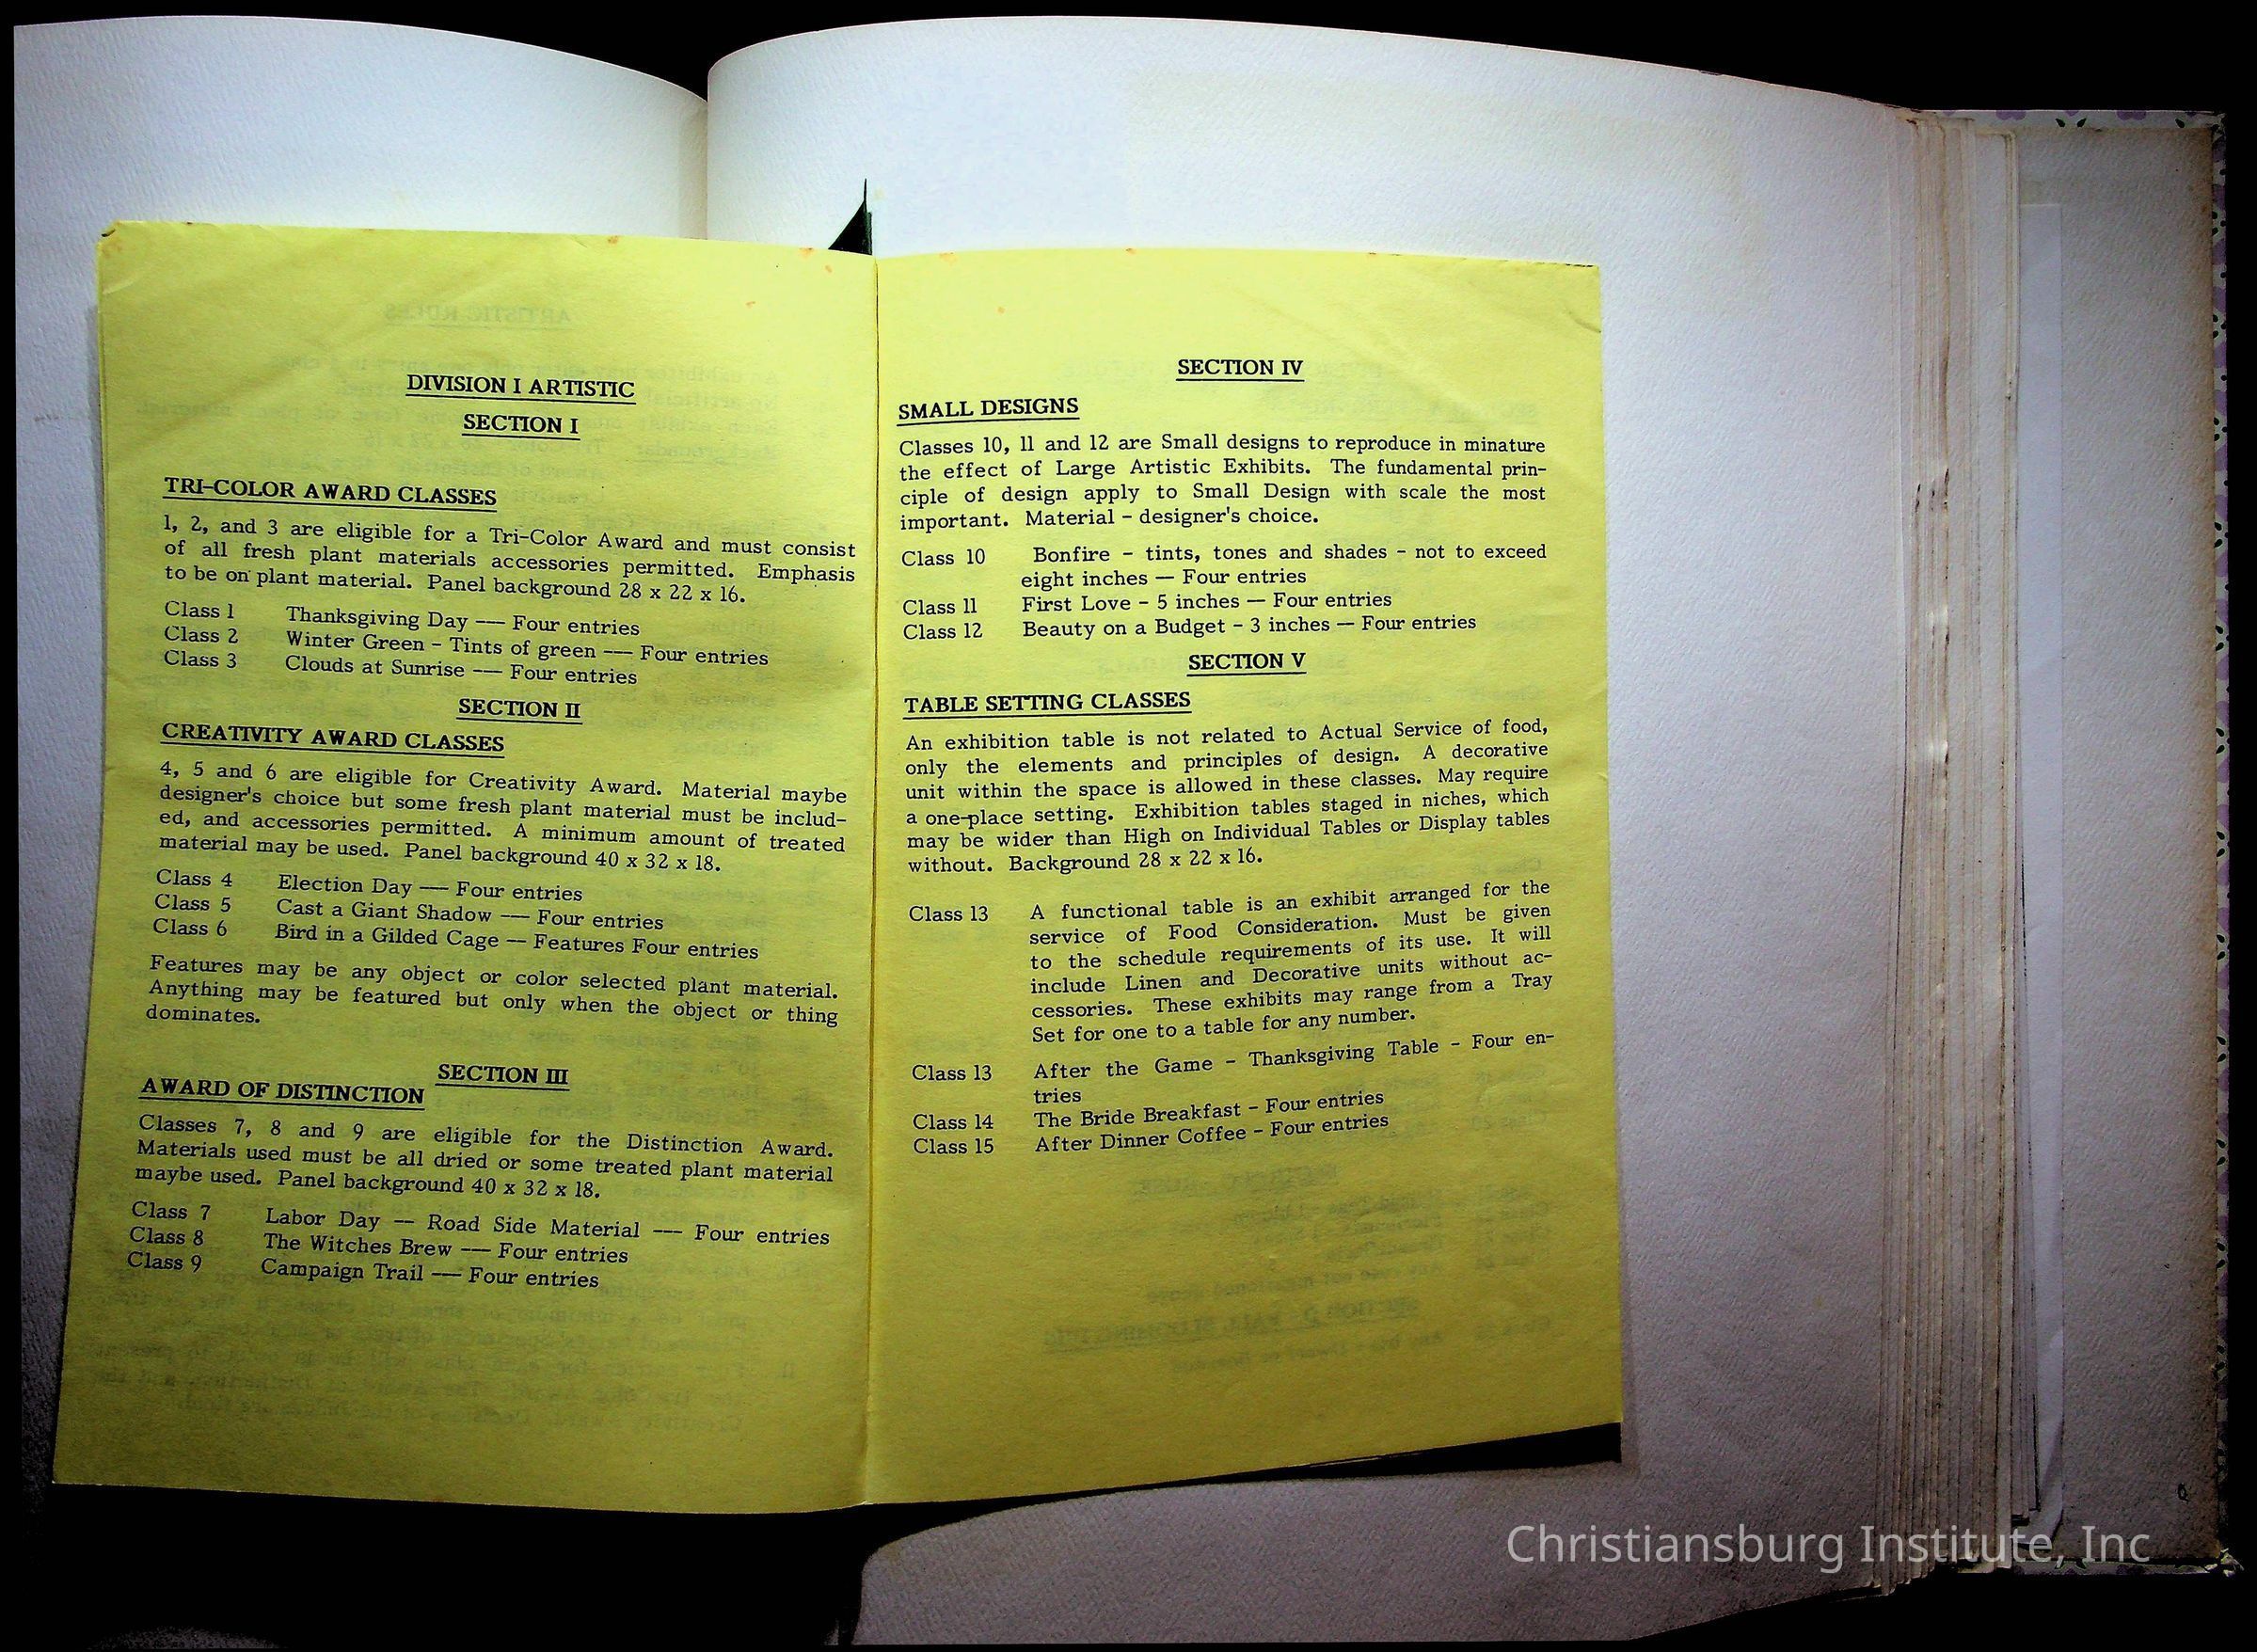 DIVISION I ARTISTIC
SECTION I
TRI-COLOR AWARD CLASSES
1, 2, and 3 are eligible for a Tri-Color Award and must consist
of all fresh plant materials accessories permitted. Emphasis
to be on plant material. Panel background 28 x 22 x 16.
Class 1 Thanksgiving Day --- Four entries
Class 2 Winter Green - Tints of green --- Four entries
Class 3 Clouds at Sunrise --- Four entries
SECTION II
CREATIVITY AWARD CLASSES
4, 5 and 6 are eligible for Creativity Award. Material maybe
designer's choice but some fresh plant material must be includ-
ed, and accessories permitted. A minimum amount of treated
material may be used. Panel background 40 x 32 x 18.
Class 4 Election Day --- Four entries
Class 5 Cast a Giant Shadow --- Four entries
Class 6 Bird in a Gilded Cage -- Features Four entries
Features may be any object or color selected plant material.
Anything may be featured but only when the object or thing
dominates.
SECTION III
AWARD OF DISTINCTION
Classes 7, 8 and 9 are eligible for the Distinction Award.
Materials used must be all dried or some treated plant material
maybe used. Panel background 40 x 32 x 18.
Class 7 Labor Day -- Road Side Material --- Four entries
Class 8 The Witches Brew --- Four entries
Class 9 Campaign Trail --- Four entries
SECTION IV
SMALL DESIGNS
Classes 10, 11 and 12 are Small designs to reproduce in minature
the effect of Large Artistic Exhibits. The fundamental prin-
ciple of design apply to Small Design with scale the most
important. Material - designer's choice.
Class 10 Bonfire - tints, tones and shades - not to exceed
eight inches -- Four entries
Class 11 First Love - 5 inches -- Four entries
Class 12 Beauty on a Budget - 3 inches -- Four entries
SECTION V
TABLE SETTING CLASSES
An exhibition table is not related to Actual Service of food,
only the elements and principles of design. A decorative
unit within the space is allowed in these classes. May require
a one-place setting. Exhibition tables staged in niches, which
may be wider than High on Individual Tables or Display tables
without. Background 28 x 22 x 16.
Class 13 A functional table is an exhibit arranged for the
service of Food Consideration. Must be given
to the schedule requirements of its use. It will
include Linen and Decorative units without ac-
cessories. These exhibits may range from a Tray
Set for one to a table for any number.
Class 13 After the Game - Thanksgiving Table - Four en-
tries
Class 14 The Bride Breakfast - Four entries
Class 15 After Dinner Coffee - Four entries
Christiansburg Institute, Inc